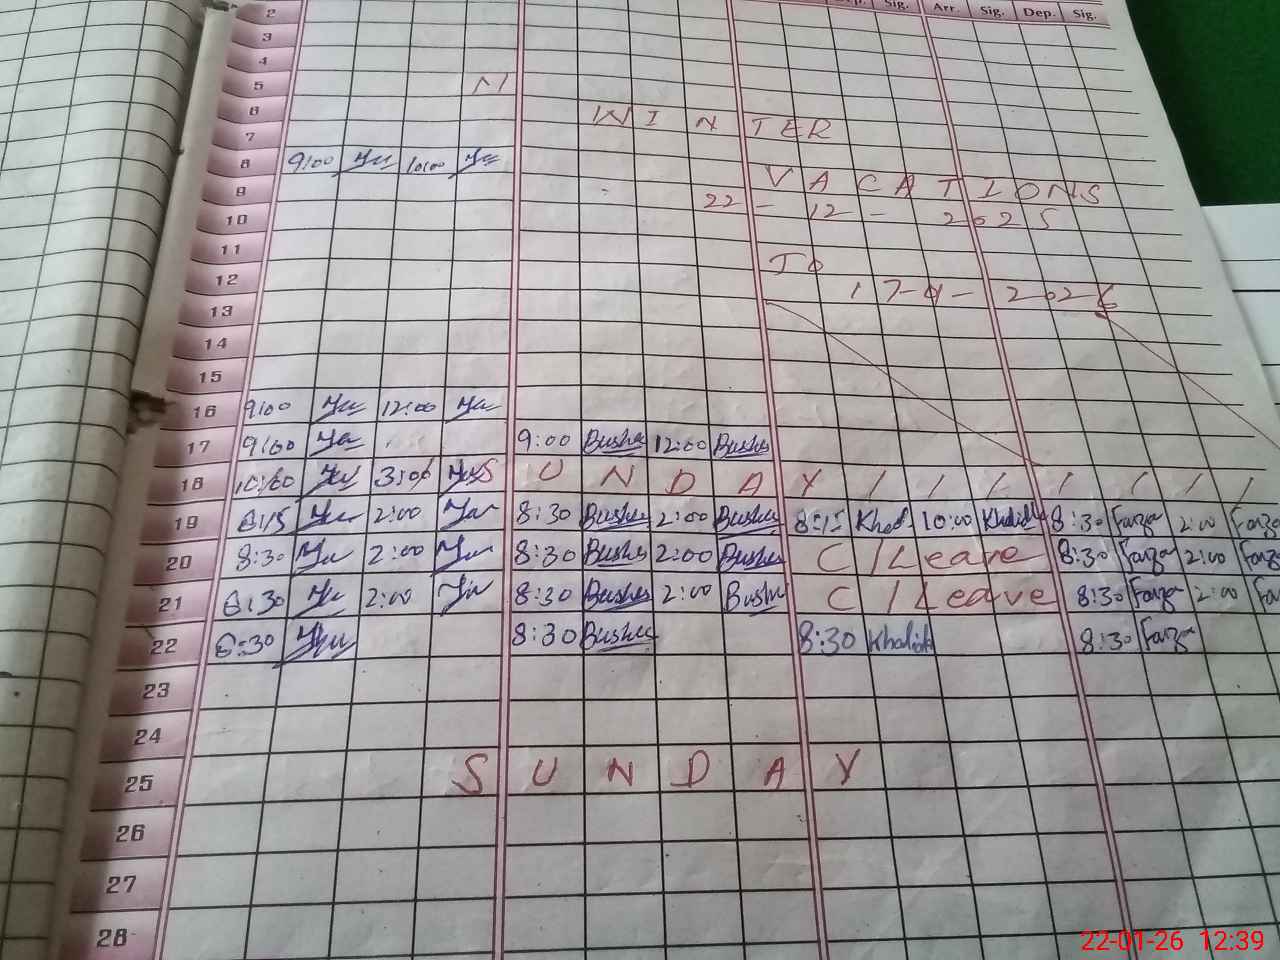 Sig. Arr. Sig. Dep. Sig.
2
3
4
5
6 WINTER
7
8 9:00 10:00
9 VACATIONS
10 22 - 12 - 2025
11
12 TO
13 2026
14
15
16 9:00 12:00
17 9:00 9:00 Bushra 12:00 Bushra
18 10:00 3:00 SUNDAY / / / / / / /
19 2:00 8:30 Bushra 2:00 Bushra 8:15 Khalid 10:00 Khalid 8:30 Farza 2:00 Farza
20 8:30 2:00 8:30 Bushra 2:00 Bushra C/Leave 8:30 Farza 2:00 Farza
21 8:30 2:00 8:30 Bushra 2:00 Bushra C/Leave 8:30 Farza 2:00
22 8:30 8:30 Bushra 8:30 Khalid 8:30 Farza
23
24
25 SUNDAY
26
27
28
22-01-26 12:39